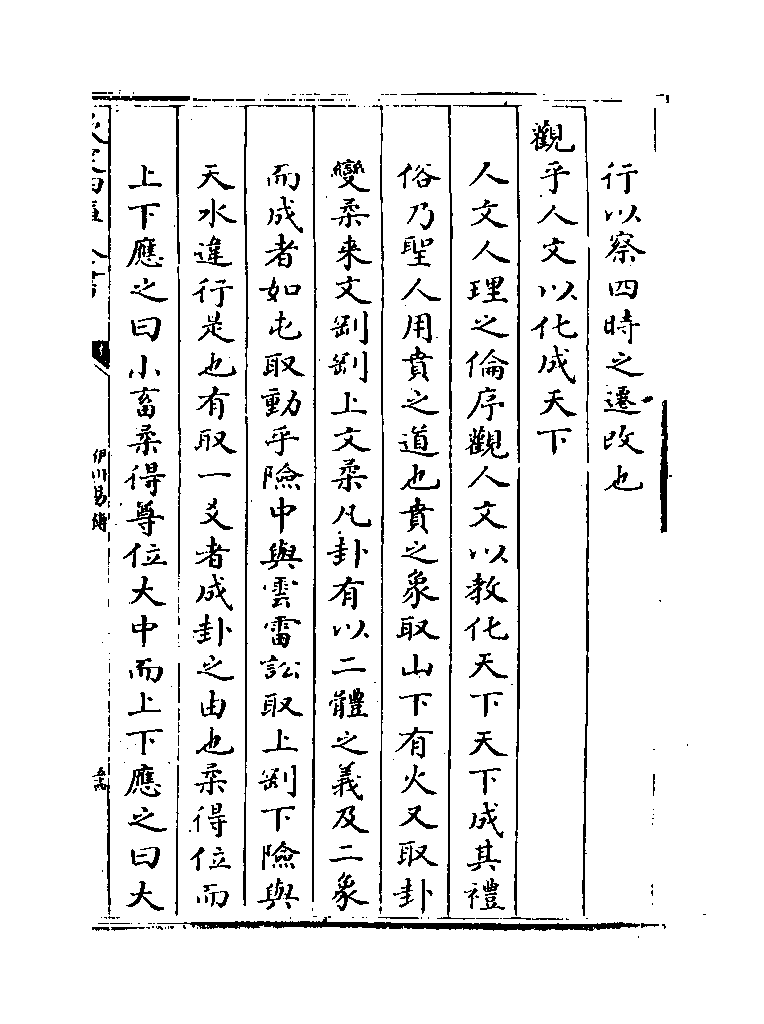 行以察四時之遷改也
觀乎人文以化成天下
人文人理之倫序觀人文以教化天下天下成其禮
俗乃聖人用賁之道也賁之象取山下有火又取卦
變柔来文剛剛上文柔凡卦有以二體之義及二象
而成者如屯取動乎險中與雲雷訟取上剛下險與
天水違行是也有取一爻者成卦之由也柔得位而
上下應之曰小畜柔得尊位大中而上下應之曰大
伊川易傳